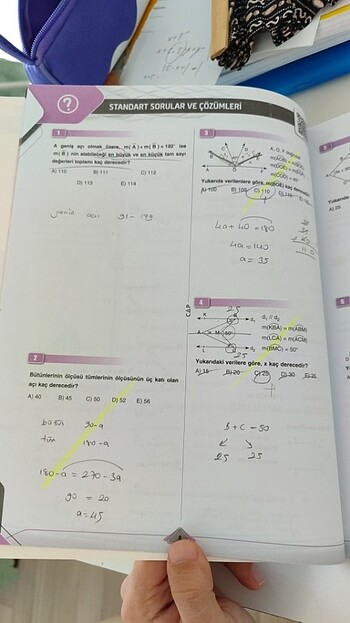 STANDART SORULAR VE ÇÖZÜMLERİ
1
A geniş açı olmak üzere, m(A) + m(B) = 192° ise
m(B) nin alabileceği en büyük ve en küçük tam sayı
değerleri toplamı kaç derecedir?
A) 110 B) 111 C) 112
D) 113 E) 114
geniş açı 91 - 179
2
Bütünlerinin ölçüsü tümlerinin ölçüsünün üç katı olan
açı kaç derecedir?
A) 40 B) 45 C) 50 D) 52 E) 56
bütün 90-a
tüm 180-a
180-a = 270-3a
90 = 2a
a=45
3
A, O, F
Yukarıda verilenlere göre, m(BOE) kaç derecedir?
A) 100 B) 105 C) 110
4a + 40 = 180
4a = 140
a = 35
4
ÇAP
25
d₁ // d₂
m(KBA) = m(ABM)
m(LCA) = m(ACM)
m(BMC) = 50°
25
Yukarıdaki verilere göre, x kaç derecedir?
A) 15 B) 20 C) 25 D) 30 E) 35
B + C = 50
25 25